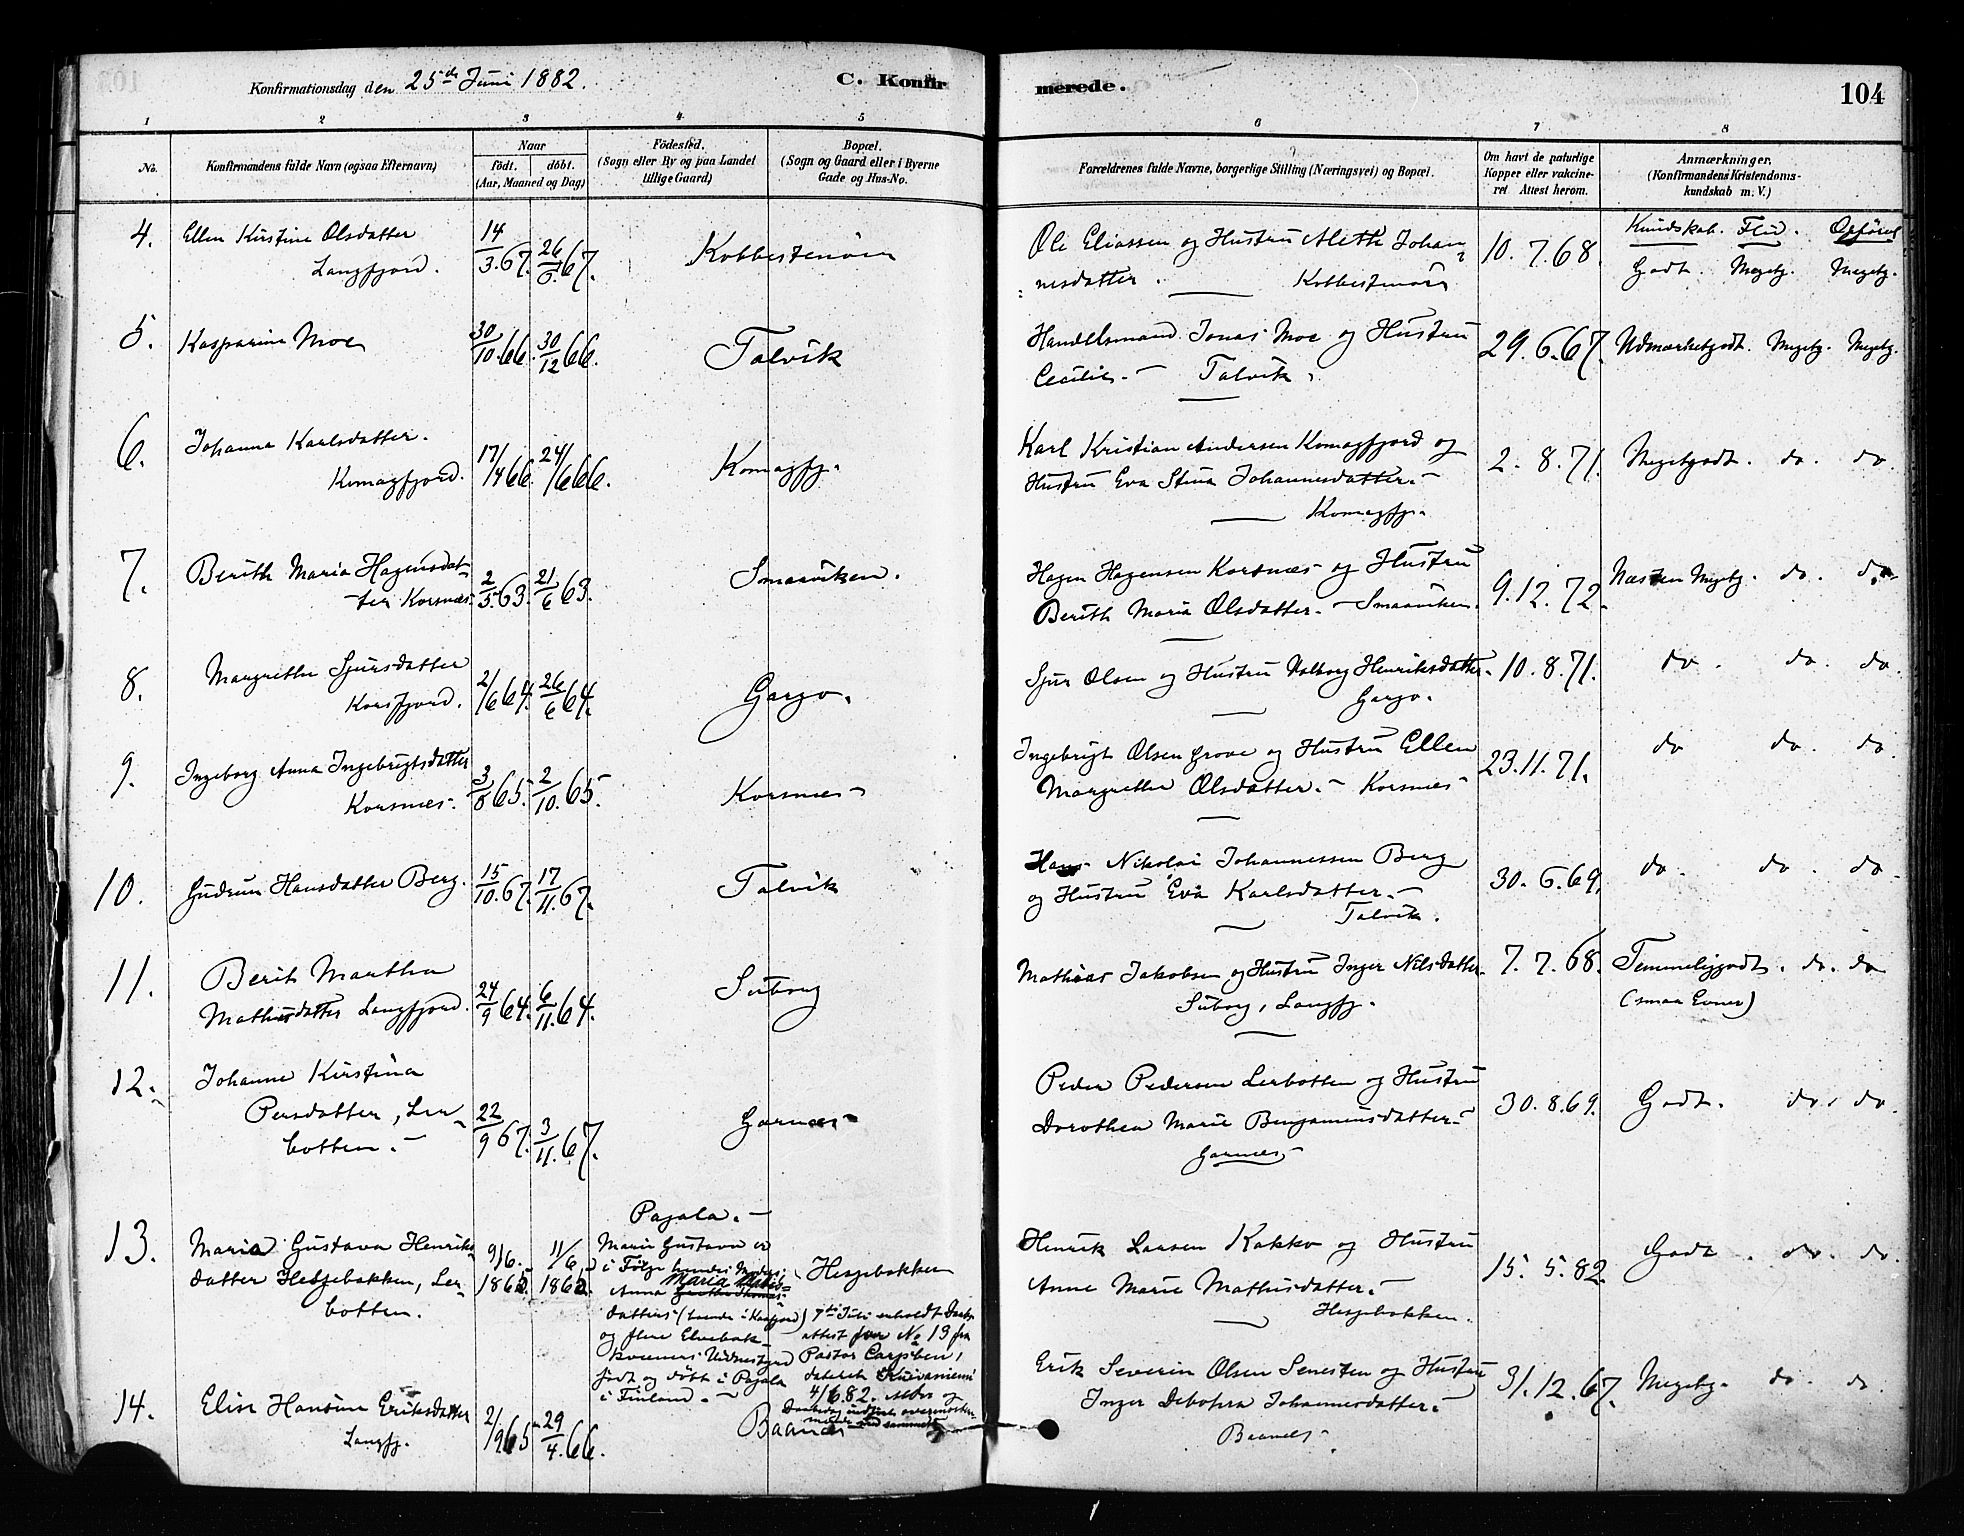 Konfirmationsdag den 25de Juni 1882.
C. Konfirmerede.
104
1 2 3 4 5 6 7 8
No.
Konfirmandens fulde Navn (ogsaa Efternavn)
Naar
födt. döbt.
(Aar, Maaned og Dag)
Födested.
(Sogn eller By og paa Landet
tillige Gaard)
Bopæl.
(Sogn og Gaard eller i Byerne
Gade og Hus-No.
Forældrenes fulde Navne, borgerlige Stilling (Næringsvei) og Bopæl.
Om havt de naturlige
Kopper eller vakcine-
ret Attest herom.
Anmærkninger.
(Konfirmandens Kristendoms-
kundskab m. V.)
Kundskab. Flid. Opförsel
4. Ellen Kirstine Olsdatter
Langfjord.
14/3.67. 26/67.
Kobbestenör
Ole Eliassen og Hustru Aleth Johan-
nesdatter. — Kobbestenör
10. 7. 68.
Godt. Megetg. Megetg.
5. Kasparine Moe
30/10.66. 30/12 66.
Talvik
Handelsmand Jonas Moe og Hustru
Cecilie. — Talvik.
29. 6. 67.
Udmærketgodt. Megetg. Megetg.
6. Johanna Karlsdatter.
Komagfjord.
17/4 66. 24/6 66.
Komagfj.
Karl Kristian Andersen Komagfjord og
Hustru Eva Stina Johannesdatter. —
Komagfj.
2. 8. 71.
Megetgodt. do. do.
7. Berith Maria Hagensdat-
ter Korsnæs.
2/5.63. 21/6 63.
Smaaviken.
Hagen Hagensen Korsnæs og Hustru
Berith Maria Olsdatter. — Smaaviken.
9. 12. 72.
Næsten Megetg. do. do.
8. Margrethe Sjursdatter
Korsfjord.
2/6 64. 26/6 64.
Gargo.
Sjur Olsen og Hustru Valborg Henriksdatter.
Gargo.
10. 8. 71.
do. do. do.
9. Ingeborg Anna Ingebrigtsdatter
Korsnæs.
3/8 65. 2/10. 65.
Korsnæs
Ingebrigt Olsen Grove og Hustru Ellen
Margrethe Olsdatter. — Korsnæs
23. 11. 71.
do do. do
10. Gudrun Hansdatter Berg.
15/10. 67. 17/11. 67.
Talvik
Hans Nikolai Johannessen Berg
og Hustru Eva Karlsdatter. —
Talvik.
30. 6. 69.
do. do. do.
11. Berit Martha
Mathisdatter Langfjord.
24/9 64. 6/11. 64.
Suborg
Mathias Jakobsen og Hustru Inger Nilsdatter.
Suborg, Langfj.
7. 7. 68.
Temmeliggodt. do. do
(smaa Evner)
12. Johanne Kirstina
Persdatter, Ler-
botten. —
22/9 67. 3/11. 67.
Garnæs
Peder Pedersen Lerbotten og Hustru
Dorothea Marie Benjaminsdatter. —
Garnæs. —
30. 8. 69.
Godt. do. do.
13. Maria Gustava Henriks-
datter Hesjebakken, Ler-
botten.
9/6. 1862. 11/6. 1862.
Pajala. —
Marie Gustava er
i Følge hendes Moders
Anna Maria
datters (boende i Kaafjord)
og flere
Vidnesbyrd
født og døbt i Pajala
i Finland. —
Hesjebakken
7de Juli erholdt Daabs-
attest for No 13 fra
Pastor
dateret
4/6 82.
Henrik Larsen Kakko og Hustru
Anne Marie Mathisdatter. —
Hesjebakken.
15. 5. 82.
Godt. do. do.
14. Elise Hansine Eriksdatter
Langfj.
2/9 65 29/4. 66.
Baanæs
Erik Severin Olsen Senesten og Hustru
Inger Debohra Johannesdatter. —
Baanæs.
31. 12. 67.
Megetg. do. do.